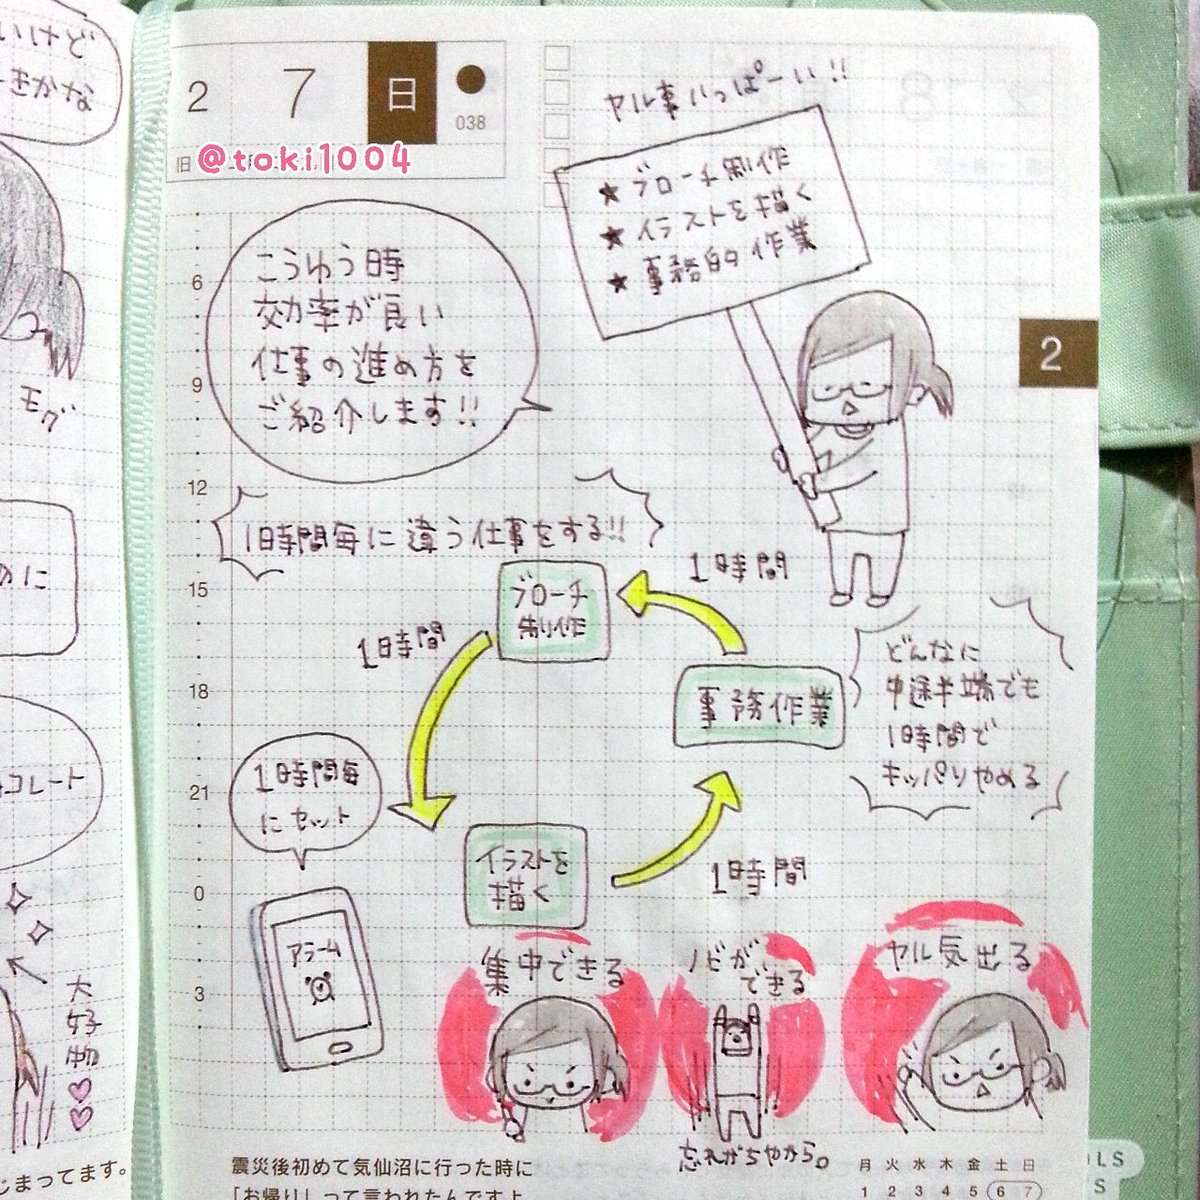 いけど
ーきかな
モグ
のに
コレート
大
好
物
じまってます。
2 7 日
038
旧
@toki1004
ヤル事いっぱーい!!
★ブローチ制作
★イラストを描く
★事務的作業
こうゆう時
効率が良い
仕事の進め方を
ご紹介します!!
2
6
9
12
15
18
21
0
3
1時間毎に違う仕事をする!!
ブローチ
制作
1時間
1時間
事務作業
どんなに
中途半端でも
1時間で
キッパリやめる
1時間毎
にセット
イラストを
描く
1時間
アラーム
集中できる
ノビが
できる
ヤル気出る
忘れがちやから。
震災後初めて気仙沼に行った時に
「お帰り」って言われたんですよ
月 火 水 木 金 土 日
1 2 3 4 5 6 7
OLS
S